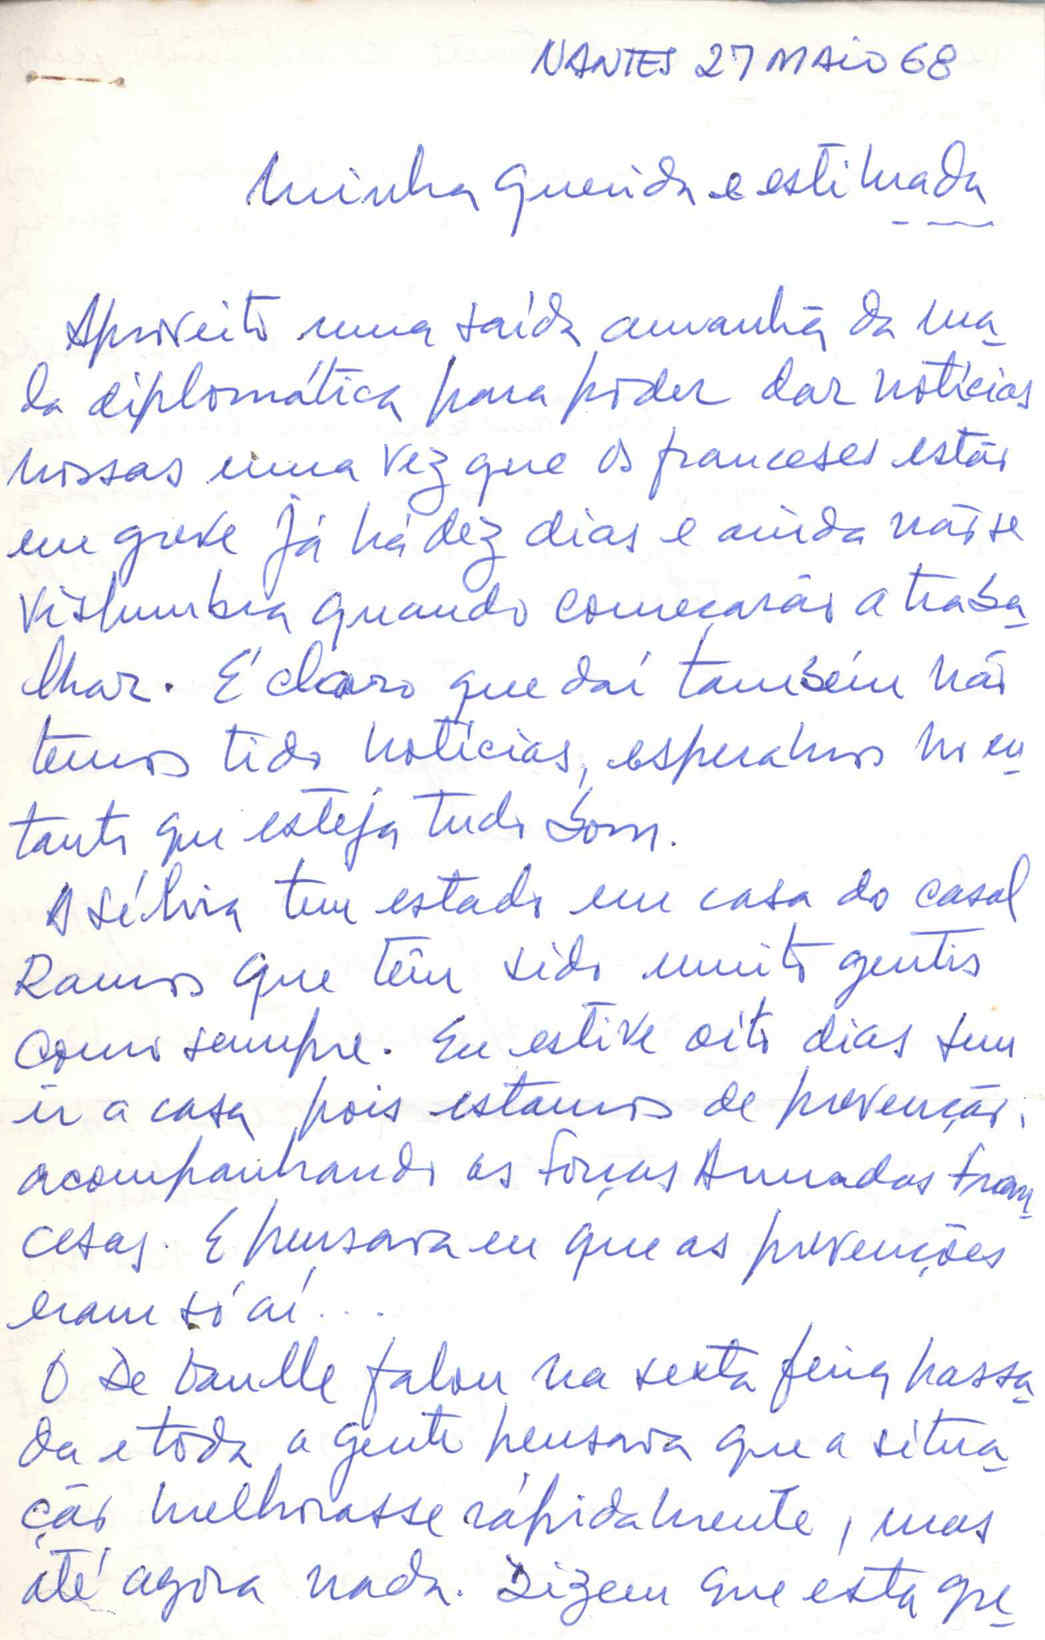 NANTES 27 MAIO 68
Minha querida e estimada
Aproveito uma saída amanhã da ma_
la diplomática para poder dar notícias
nossas uma vez que os franceses estão
em greve já há dez dias e ainda não se
vislumbra quando começarão a traba_
lhar. É claro que daí também não
temos tido notícias, esperamos no en_
tanto que esteja tudo bom.
A Sílvia tem estado em casa do casal
Ramos que têm sido muito gentis
como sempre. Eu estive oito dias sem
ir a casa pois estamos de prevenção,
acompanhando as Forças Armadas fran_
cesas. E pensava eu que as prevenções
eram só aí...
O De Gaulle falou na sexta feira passa_
da e toda a gente pensava que a situa_
ção melhorasse rápidamente, mas
até agora nada. Dizem que esta gre_